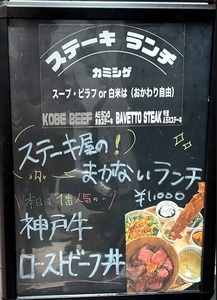 ステーキ ランチ
カミシゲ
スープ・ピラフ or 白米は(おかわり自由)
KOBE BEEF BAVETTO STEAK
ステーキ屋の!
まかないランチ
¥1,000
本日は1番人気の〜
神戸牛
ローストビーフ丼